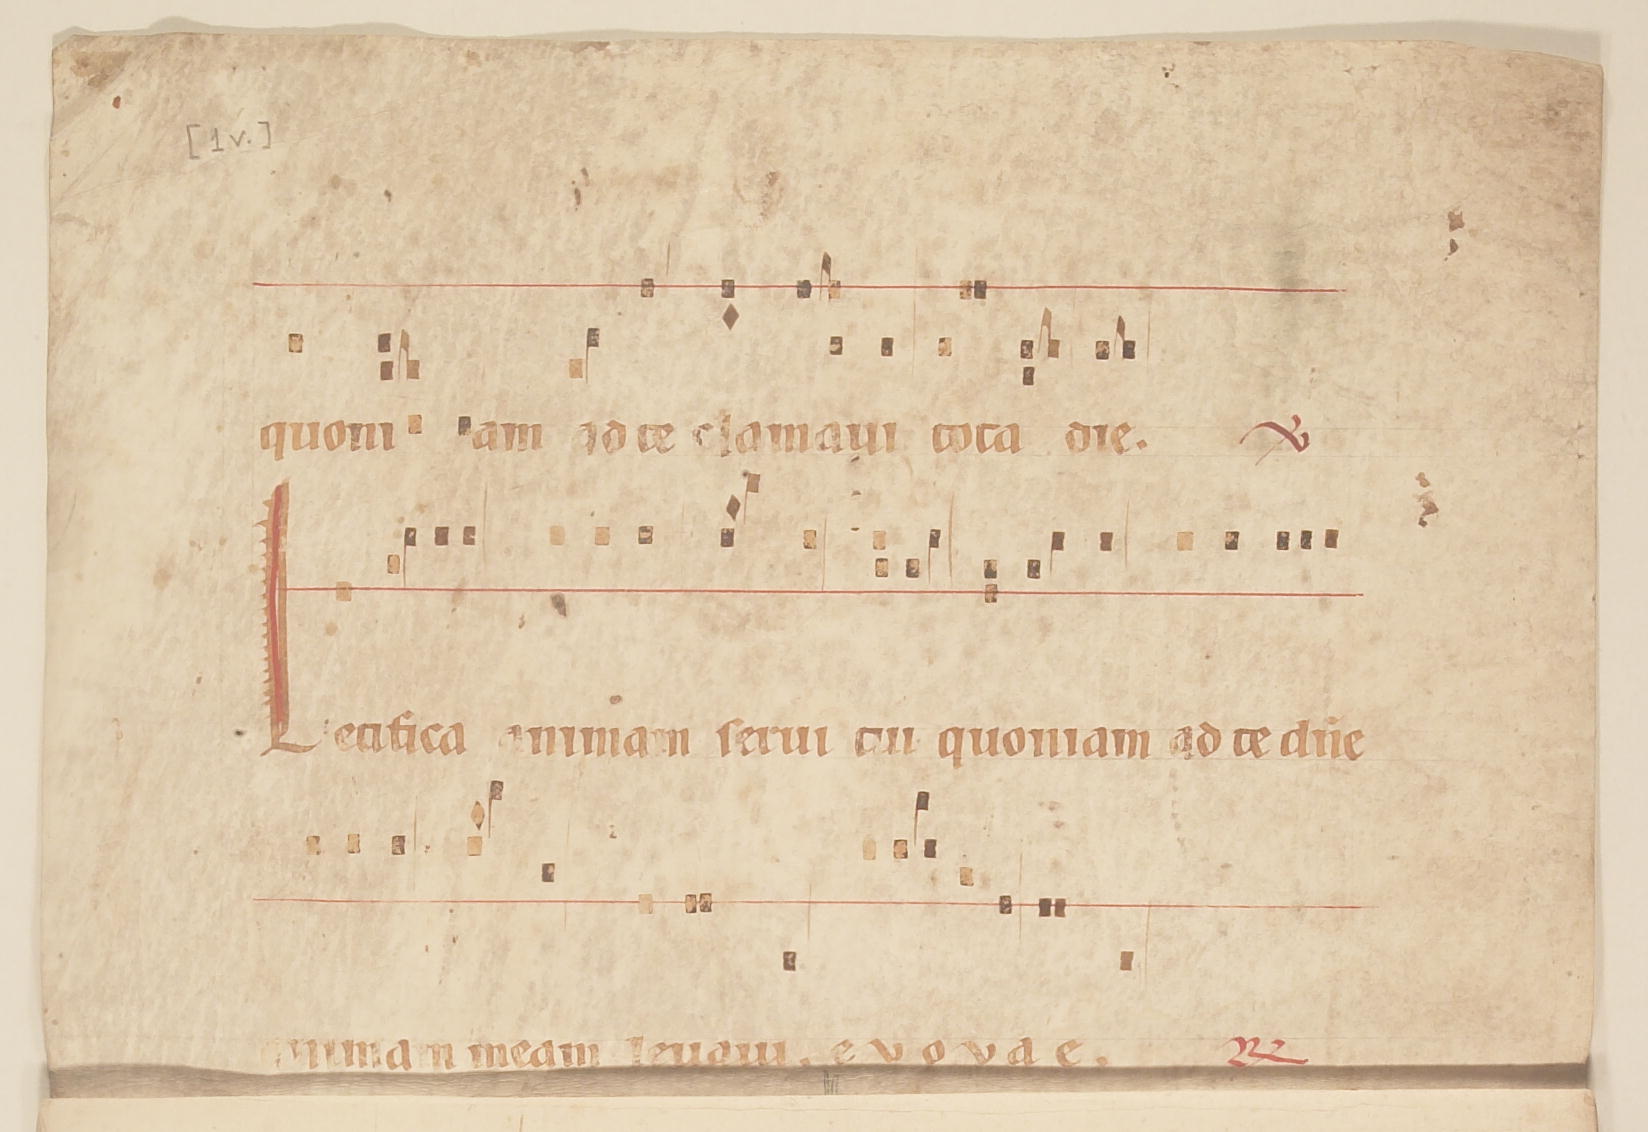 [1v.]
quoni am ad te clamaui tota die. ℣
Letifica animam serui tui quoniam ad te dñe
animam meam leuaui. e v o v a e. ℟